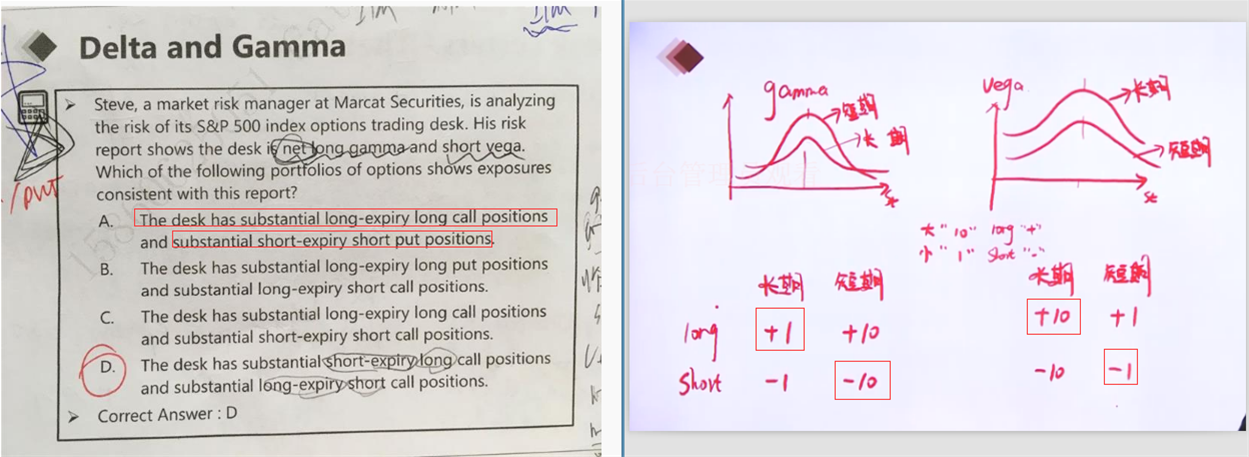 Delta and Gamma
Steve, a market risk manager at Marcat Securities, is analyzing
the risk of its S&P 500 index options trading desk. His risk
report shows the desk is net long gamma and short vega.
Which of the following portfolios of options shows exposures
consistent with this report?
A. The desk has substantial long-expiry long call positions
and substantial short-expiry short put positions.
B. The desk has substantial long-expiry long put positions
and substantial long-expiry short call positions.
C. The desk has substantial long-expiry long call positions
and substantial short-expiry short call positions.
D. The desk has substantial short-expiry long call positions
and substantial long-expiry short call positions.
Correct Answer : D
put
gamma
短期
长期
St
vega
长期
短期
St
大 "10" long "+"
小 "1" short "-"
长期 短期
long +1 +10
short -1 -10
长期 短期
+10 +1
-10 -1